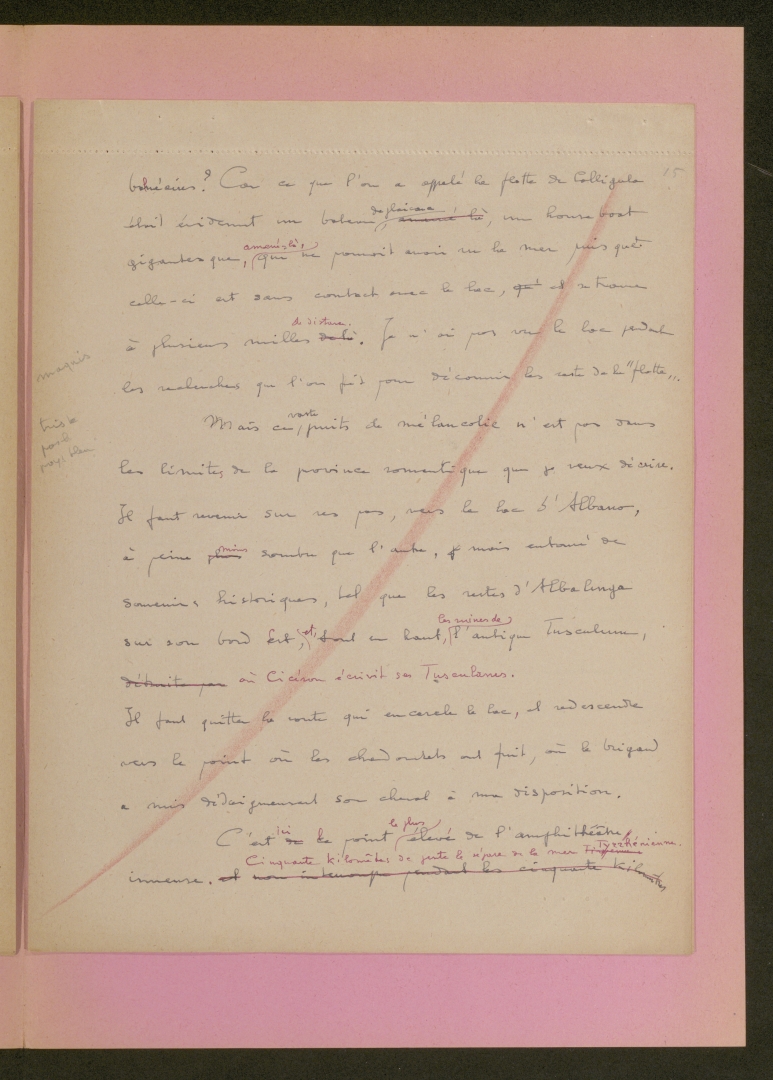 15
? Car ce que l'on a appelé la flotte de Calligula
était évidemment un bateau de plaisance, amarré là, un house boat
gigantesque, amarré là, qui ne pouvait avoir vu la mer puisque
celle-ci est sans contact avec le lac, et se trouve
à plusieurs milles de distance. de là. Je n'ai pas vu le lac pendant
les recherches que l'on fit pour découvrir les restes de la "flotte".
maquis
triste
Mais ce vaste puits de mélancolie n'est pas dans
les limites de la province romantique que je veux décrire.
Il faut revenir sur ses pas, vers le lac d'Albano,
à peine plus moins sombre que l'autre, mais entouré de
souvenirs historiques, tel que les restes d'Albalunga
sur son bord Est, et tout en haut, les ruines de l'antique Tusculum,
détruite par où Cicéron écrivit ses Tusculanes.
Il faut quitter la route qui encercle le lac, et redescendre
vers le point où les chaudronnets ont fui, où le brigand
a mis dédaigneusement son cheval à ma disposition.
C'est ici le point le plus élevé de l'amphithéâtre
Cinquante kilomètres de pente le sépare de la mer Tyrrhénienne.
immense. et non interrompu pendant les cinquante kilomètres